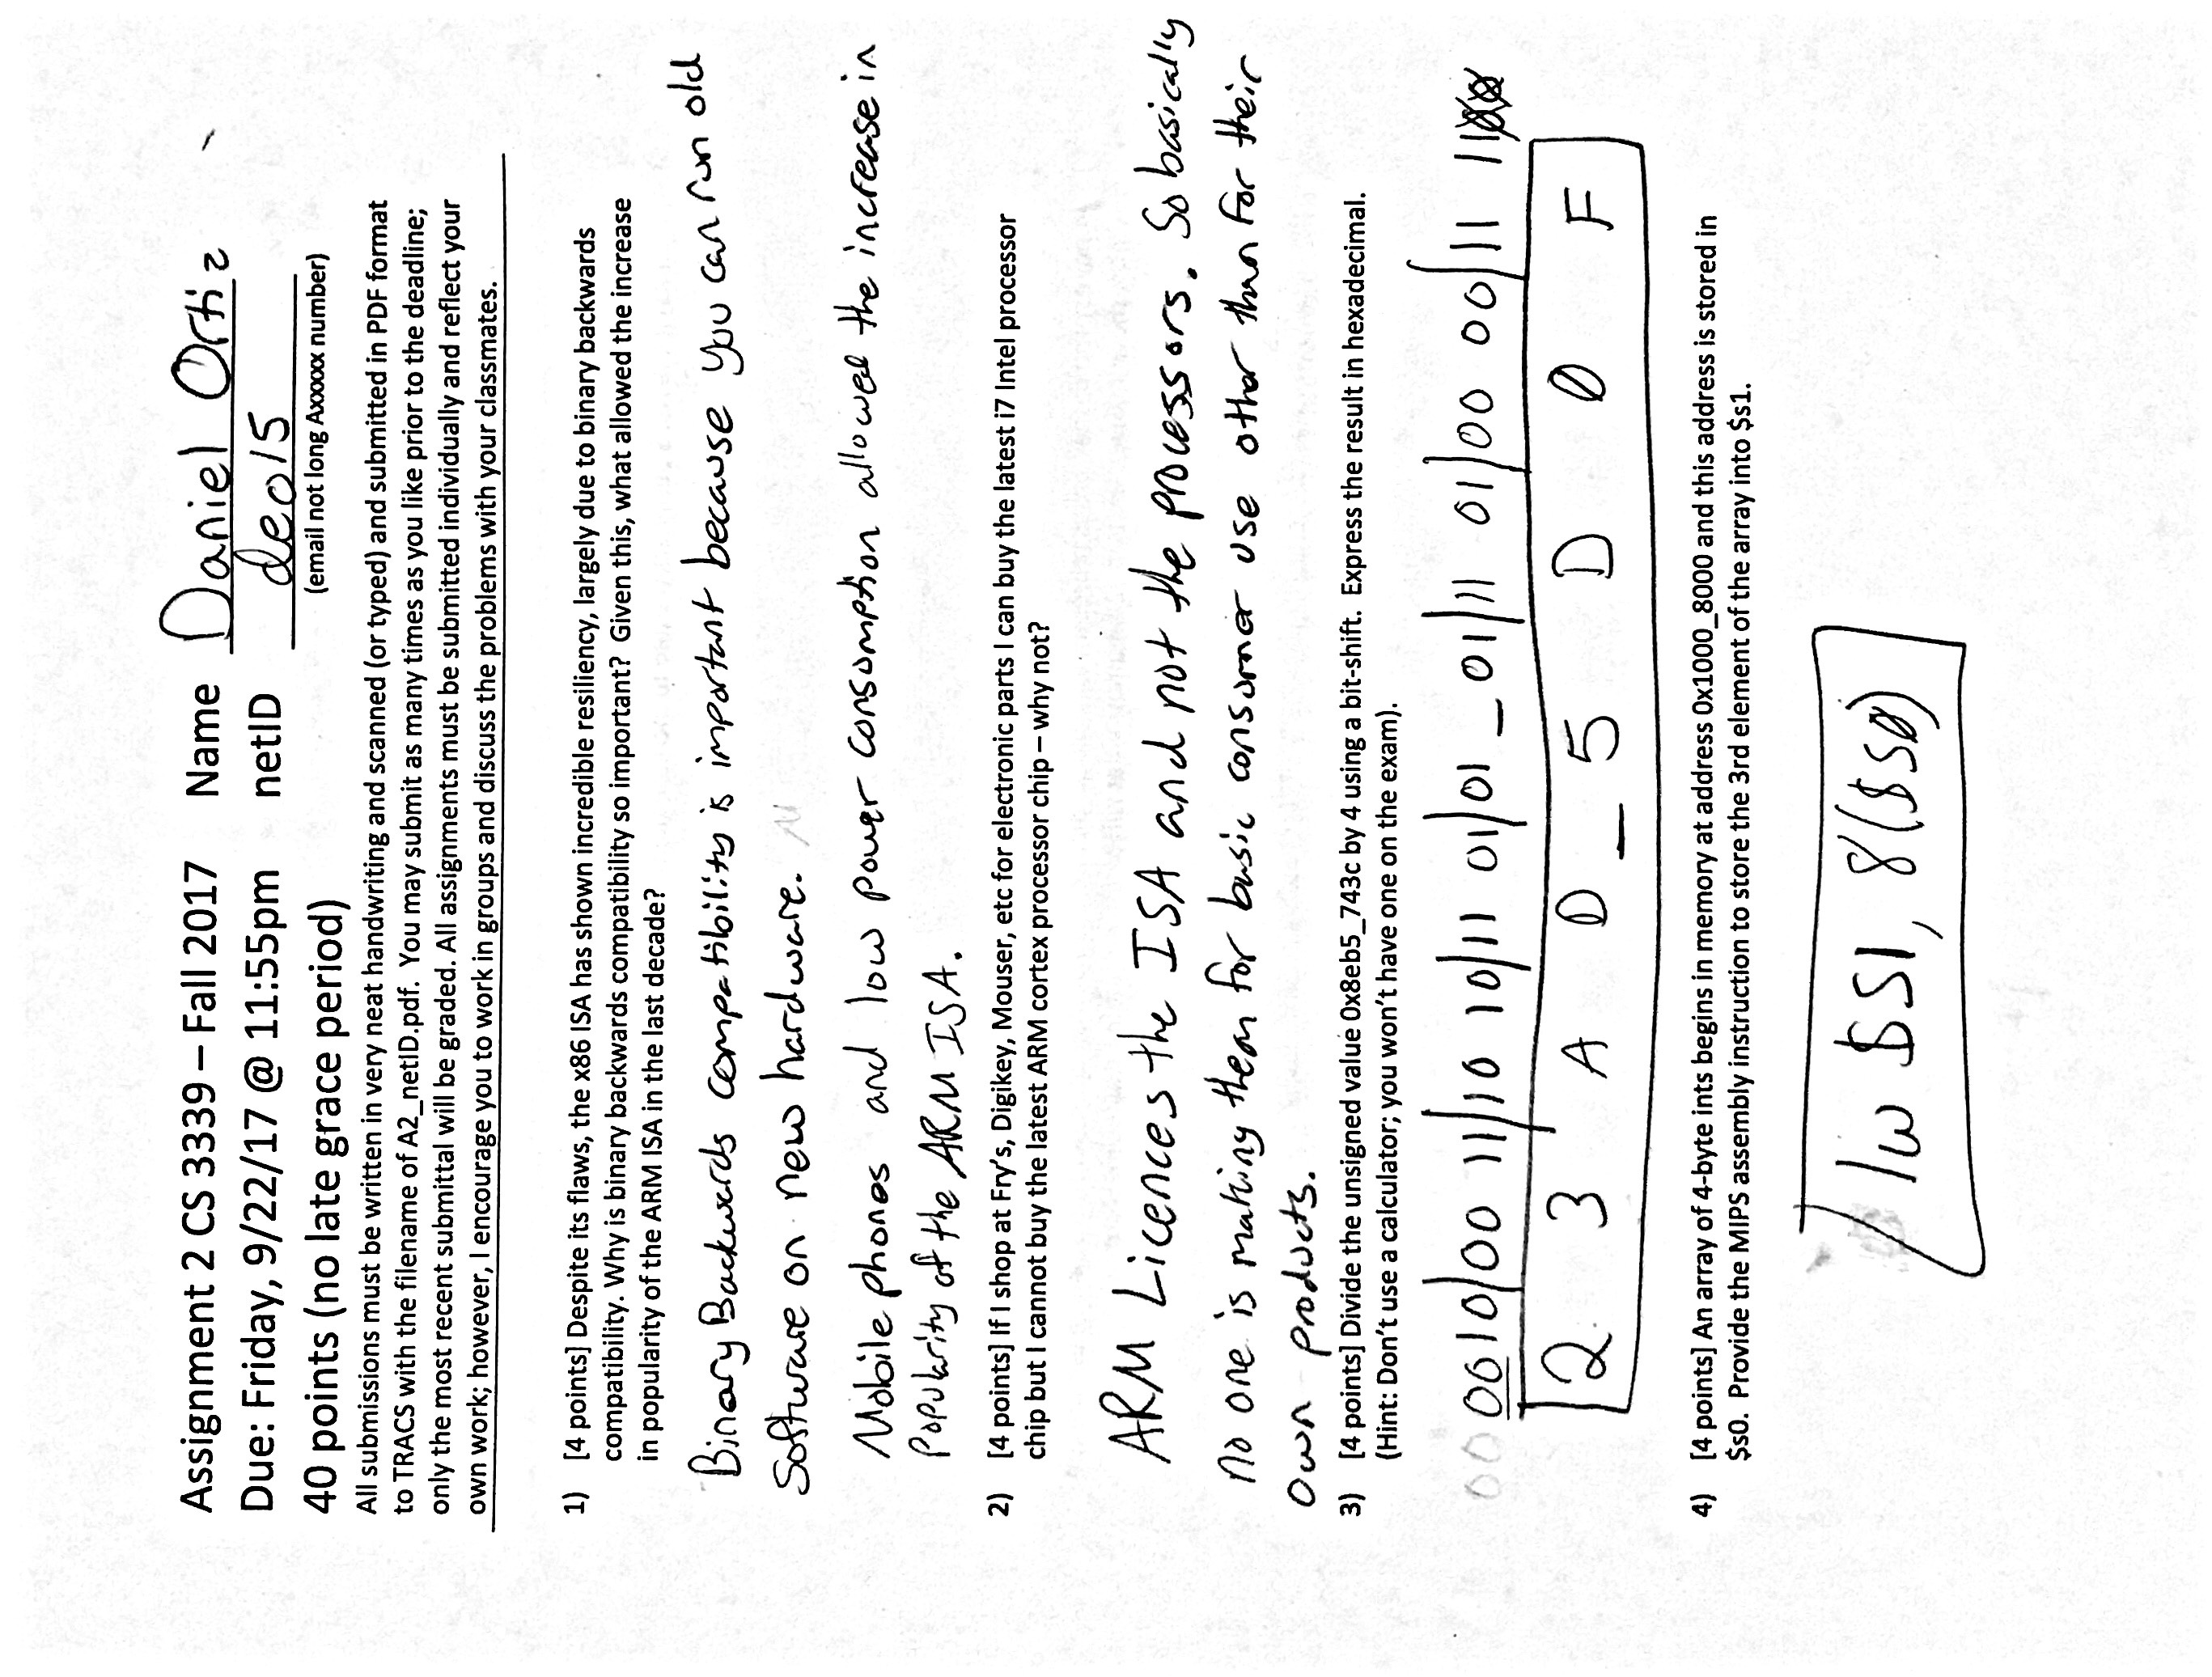 Assignment 2 CS 3339 – Fall 2017 Name Daniel Ortiz
Due: Friday, 9/22/17 @ 11:55pm netID deo15
40 points (no late grace period) (email not long Axxxxx number)
All submissions must be written in very neat handwriting and scanned (or typed) and submitted in PDF format
to TRACS with the filename of A2_netID.pdf. You may submit as many times as you like prior to the deadline;
only the most recent submittal will be graded. All assignments must be submitted individually and reflect your
own work; however, I encourage you to work in groups and discuss the problems with your classmates.
1) [4 points] Despite its flaws, the x86 ISA has shown incredible resiliency, largely due to binary backwards
compatibility. Why is binary backwards compatibility so important? Given this, what allowed the increase
in popularity of the ARM ISA in the last decade?
Binary Backwards compatibility is important because you can run old
Software on new hardware.
Mobile phones and low power consumption allowed the increase in
Popularity of the ARM ISA.
2) [4 points] If I shop at Fry's, Digikey, Mouser, etc for electronic parts I can buy the latest i7 Intel processor
chip but I cannot buy the latest ARM cortex processor chip – why not?
ARM Licences the ISA and not the processors. So basically
no one is making them for basic consumer use other than for their
own products.
3) [4 points] Divide the unsigned value 0x8eb5_743c by 4 using a bit-shift. Express the result in hexadecimal.
(Hint: Don't use a calculator; you won't have one on the exam).
00 0010/00 11/10 10/11 01/01 _ 01/11 01/00 00/11 1100
2 3 A D _ 5 D 0 F
4) [4 points] An array of 4-byte ints begins in memory at address 0x1000_8000 and this address is stored in
$s0. Provide the MIPS assembly instruction to store the 3rd element of the array into $s1.
lw $S1, 8($S0)